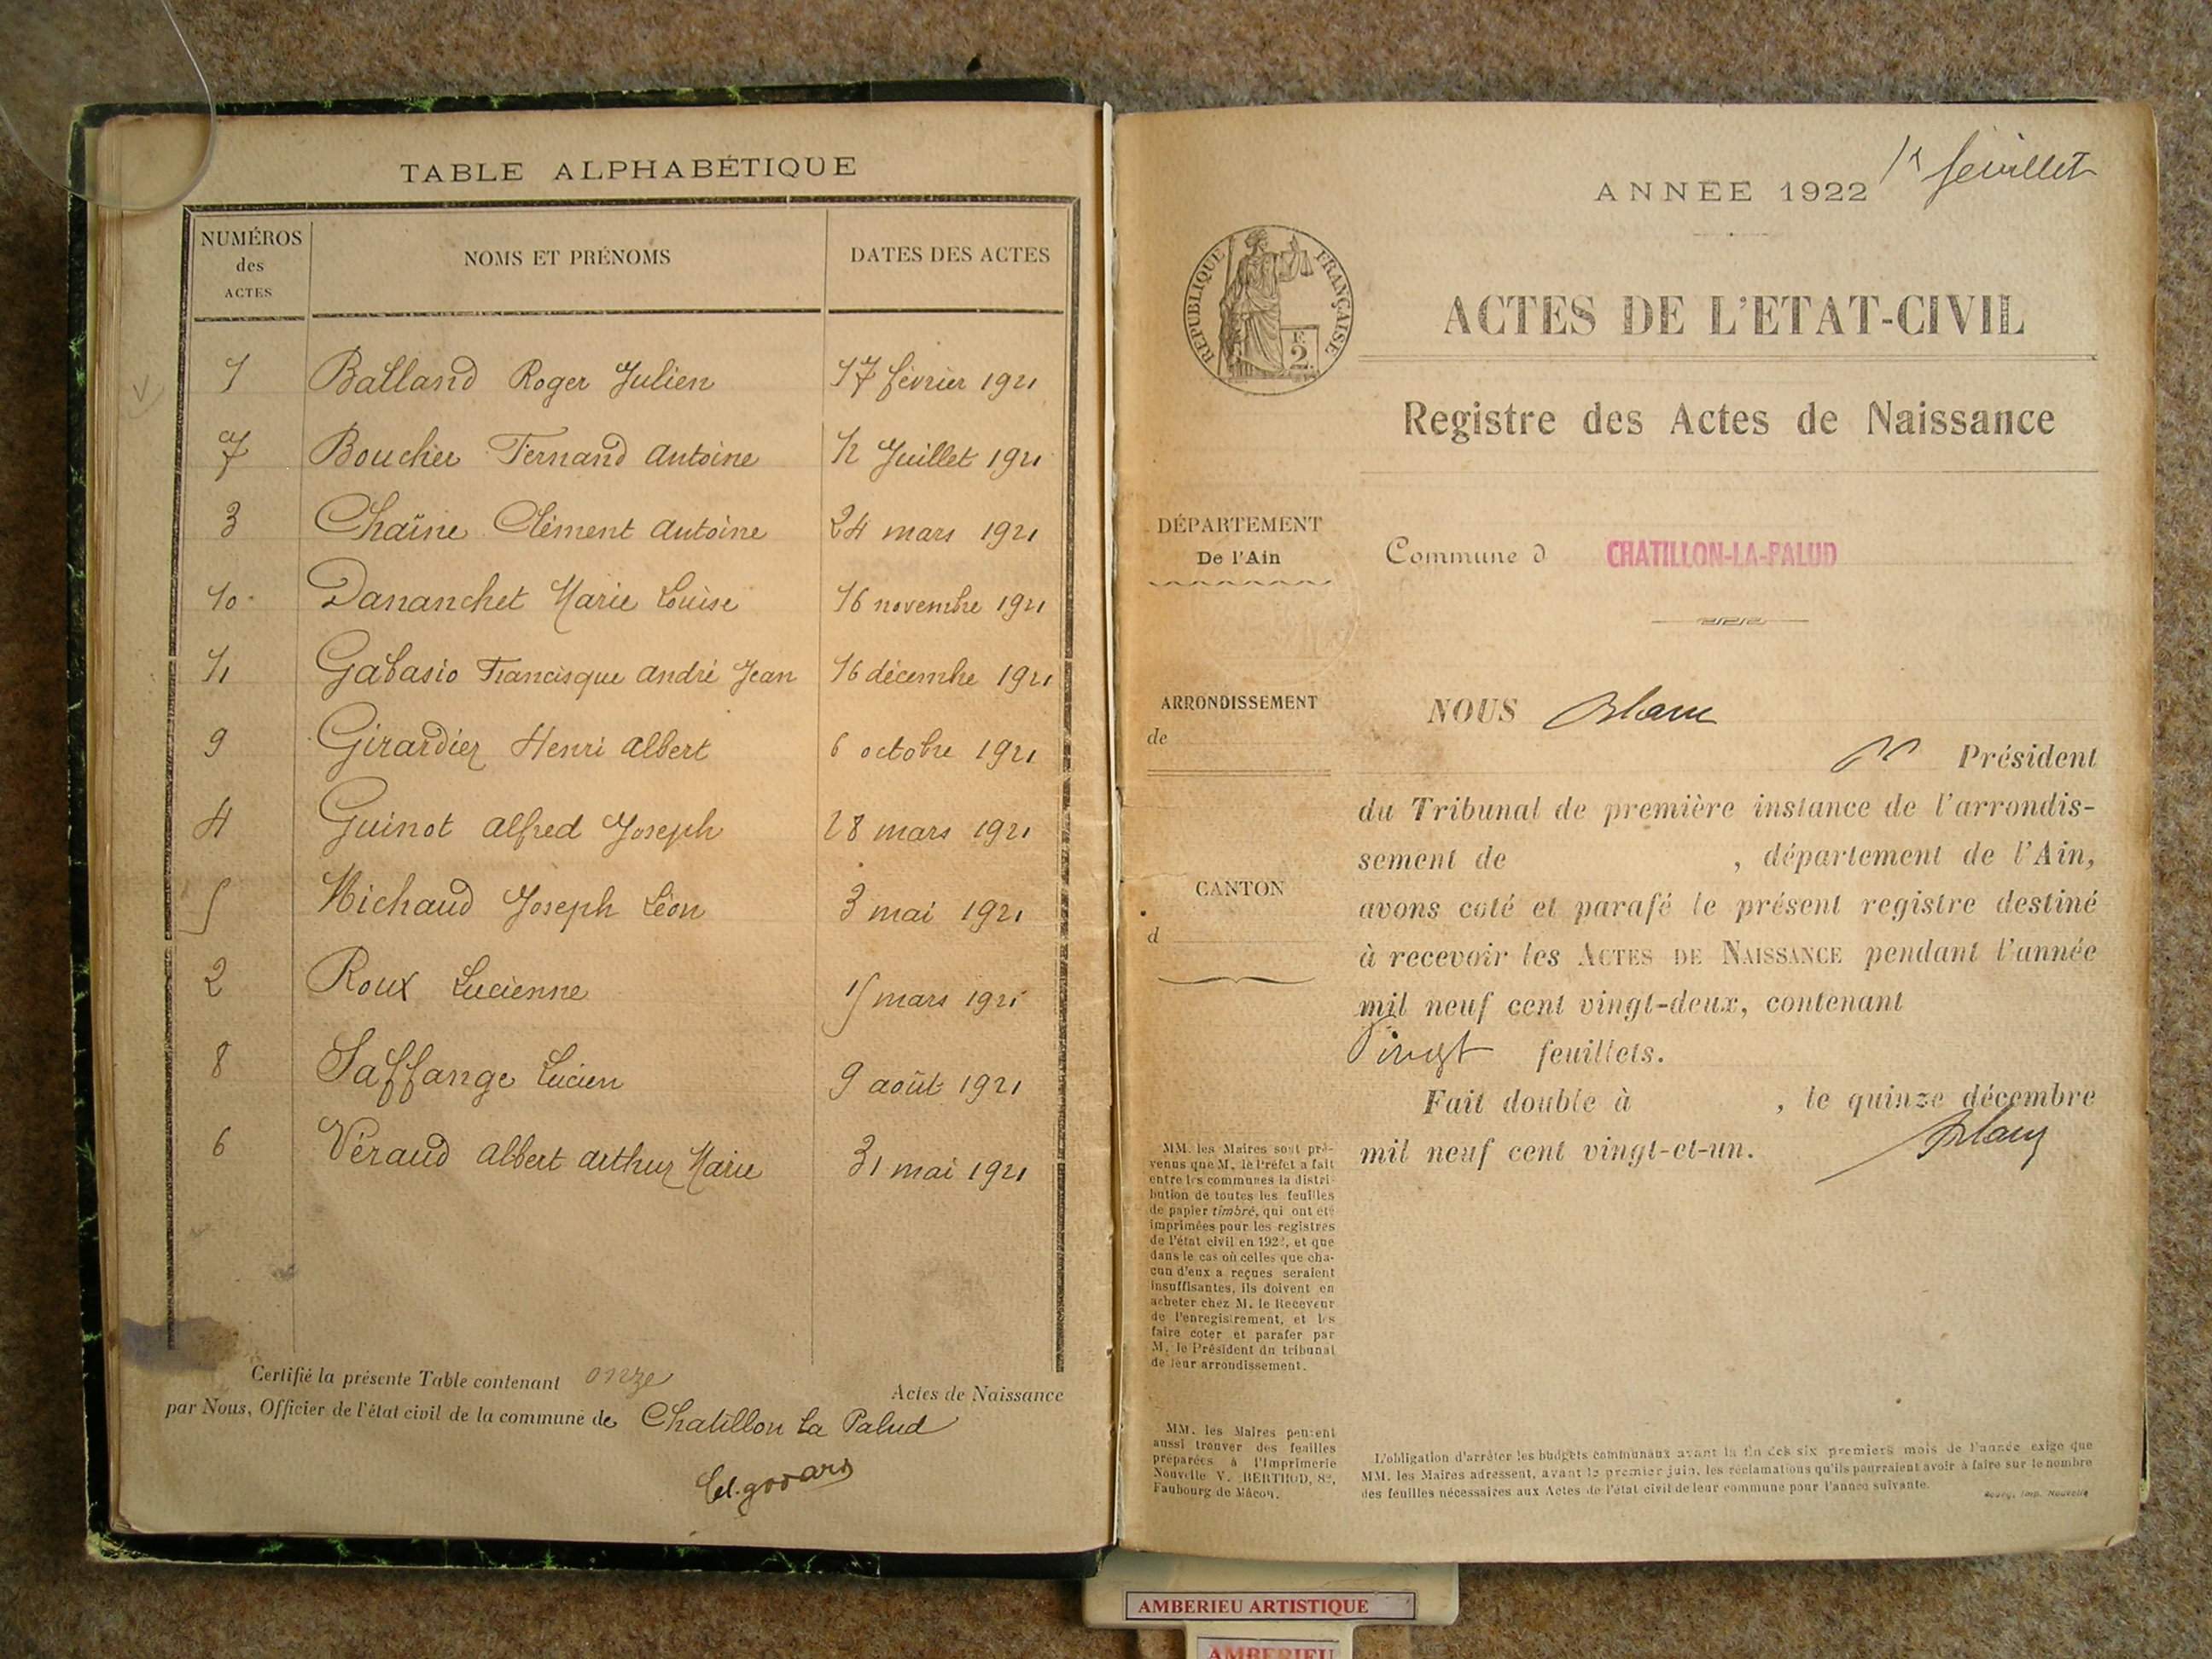 TABLE ALPHABÉTIQUE
NUMÉROS des ACTES NOMS ET PRÉNOMS DATES DES ACTES
1 Balland Roger Julien 17 février 1921
7 Boucher Fernand Antoine 12 Juillet 1921
3 Chaîne Clément Antoine 24 mars 1921
10 Dananchet Marie Louise 16 novembre 1921
11 Gabasio Francisque André Jean 16 décembre 1921
9 Girardier Henri Albert 6 octobre 1921
4 Guinot Alfred Joseph 28 mars 1921
5 Michaud Joseph Léon 3 mai 1921
2 Roux Lucienne 15 mars 1921
8 Saffange Lucien 9 août 1921
6 Véraud Albert Arthur Marie 31 mai 1921
Certifié la présente Table contenant onze Actes de Naissance
par Nous, Officier de l'état civil de la commune de Chatillon La Palud
1r feuillet
ANNÉE 1922
RÉPUBLIQUE FRANÇAISE
2
ACTES DE L'ETAT-CIVIL
Registre des Actes de Naissance
DÉPARTEMENT
De l'Ain
Commune d CHATILLON-LA-PALUD
ARRONDISSEMENT
de
CANTON
d
NOUS Blanc
Président
du Tribunal de première instance de l'arrondis-
sement de , département de l'Ain,
avons coté et parafé le présent registre destiné
à recevoir les ACTES DE NAISSANCE pendant l'année
mil neuf cent vingt-deux, contenant
Vingt feuillets.
Fait double à , le quinze décembre
mil neuf cent vingt-et-un.
Blanc
MM. les Maires sont pré-
venus que M. le Préfet a fait
entre les communes la distri-
bution de toutes les feuilles
de papier timbré, qui ont été
imprimées pour les registres
de l'état civil en 1922, et que
dans le cas où celles que cha-
cun d'eux a reçues seraient
insuffisantes, ils doivent en
acheter chez M. le Receveur
de l'enregistrement, et les
faire coter et parafer par
M. le Président du tribunal
de leur arrondissement.
MM. les Maires peuvent
aussi trouver des feuilles
préparées à l'Imprimerie
Nouvelle V. BERTHOD,
Faubourg de Mâcon.
L'obligation d'arrêter les budgets communaux avant la fin des six premiers mois de l'année exige que
MM. les Maires adressent, avant le premier juin, les réclamations qu'ils pourraient avoir à faire sur le nombre
des feuilles nécessaires aux Actes de l'état civil de leur commune pour l'année suivante.
Bourg, Imp. Nouvelle
AMBERIEU ARTISTIQUE
AMBERIEU